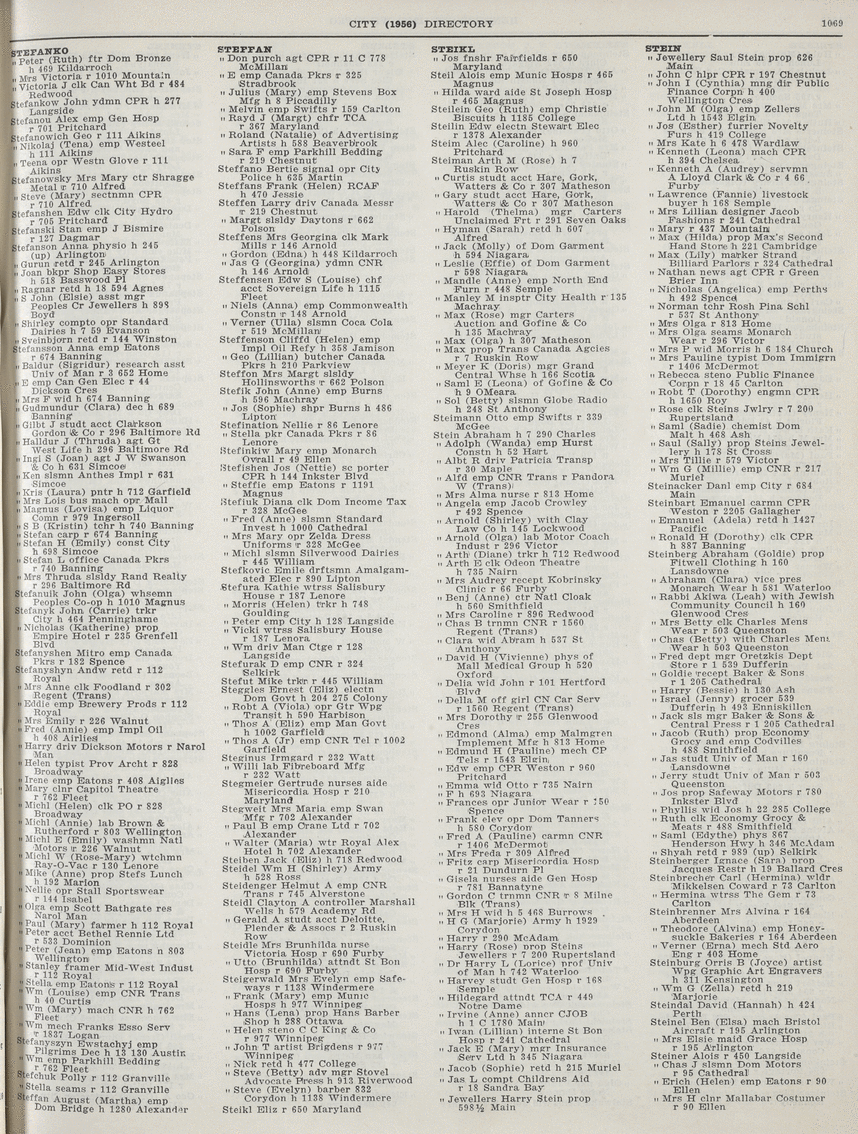 CITY (1956) DIRECTORY
1069
STEFANKO
" Peter (Ruth) ftr Dom Bronze
h 469 Kildarroch
" Mrs Victoria r 1010 Mountain
" Victoria J clk Can Wht Bd r 484
Redwood
Stefankow John ydmn CPR h 277
Langside
Stefanou Alex emp Gen Hosp
r 701 Pritchard
Stefanowich Geo r 111 Aikins
" Nikolaj (Tena) emp Westeel
h 111 Aikins
" Teena opr Westn Glove r 111
Aikins
Stefanowsky Mrs Mary ctr Shragge
Metal r 710 Alfred
" Steve (Mary) sectnmn CPR
r 710 Alfred
Stefanshen Edw clk City Hydro
r 705 Pritchard
Stefanski Stan emp J Bismire
r 127 Dagmar
Stefanson Anna physio h 245
(up) Arlington
" Gurun retd r 245 Arlington
" Joan bkpr Shop Easy Stores
h 518 Basswood Pl
" Ragnar retd h 18 594 Agnes
" S John (Elsie) asst mgr
Peoples Cr Jewellers h 898
Boyd
" Shirley compto opr Standard
Dairies h 7 59 Evanson
" Sveinbjorn retd r 144 Winston
Stefansson Anna emp Eatons
r 674 Banning
" Baldur (Sigridur) research asst
Univ of Man r 3 652 Home
" E emp Can Gen Elec r 44
Dickson Cres
" Mrs F wid h 674 Banning
" Gudmundur (Clara) dec h 689
Banning
" Gilbt J studt acct Clarkson
Gordon & Co r 296 Baltimore Rd
" Halldur J (Thruda) agt Gt
West Life h 296 Baltimore Rd
" Ingi S (Joan) agt J W Swanson
& Co h 631 Simcoe
" Ken slsmn Anthes Impl r 631
Simcoe
" Kris (Laura) pntr h 712 Garfield
" Mrs Lois bus mach opr Mall
" Magnus (Lovisa) emp Liquor
Comn r 979 Ingersoll
" S B (Kristin) tchr h 740 Banning
" Stefan carp r 674 Banning
" Stefan H (Emily) const City
h 698 Simcoe
" Stefan L office Canada Pkrs
r 740 Banning
" Mrs Thruda slsldy Rand Realty
r 296 Baltimore Rd
Stefanuik John (Olga) whsemn
Peoples Co-op h 1010 Magnus
Stefanyk John (Carrie) trkr
City h 464 Penninghame
" Nicholas (Katherine) prop
Empire Hotel r 235 Grenfell
Blvd
Stefanyshen Mitro emp Canada
Pkrs r 182 Spence
Stefanyshyn Andw retd r 112
Royal
" Mrs Anne clk Foodland r 302
Regent (Trans)
" Eddie emp Brewery Prods r 112
Royal
" Mrs Emily r 226 Walnut
" Fred (Annie) emp Impl Oil
h 408 Airlies
" Harry driv Dickson Motors r Narol
Man
" Helen typist Prov Archt r 828
Broadway
" Irene emp Eatons r 408 Aiglies
" Mary clnr Capitol Theatre
r 762 Fleet
" Michl (Helen) clk PO r 828
Broadway
" Michl (Annie) lab Brown &
Rutherford r 803 Wellington
" Michl E (Emily) washmn Natl
Motors r 226 Walnut
" Michl W (Rose-Mary) wtchmn
Ray-O-Vac r 130 Lenore
" Mike (Anne) prop Stefs Lunch
h 192 Marion
" Nellie opr Stall Sportswear
r 144 Isabel
" Olga emp Scott Bathgate res
Narol Man
" Paul (Mary) farmer h 112 Royal
" Peter acct Bethel Rennie Ltd
r 533 Dominion
" Peter (Jean) emp Eatons n 803
Wellington
" Stanley framer Mid-West Indust
r 112 Royal
" Stella emp Eatons r 112 Royal
" Wm (Louise) emp CNR Trans
h 40 Curtis
" Wm (Mary) mach CNR h 762
Fleet
" Wm mech Franks Esso Serv
r 1837 Logan
Stefanyszyn Ewstachyj emp
Pilgrims Dec h 13 130 Austin
" Wm emp Parkhill Bedding
r 762 Fleet
Stefchuk Polly r 112 Granville
" Stella seams r 112 Granville
Steffan August (Martha) emp
Dom Bridge h 1280 Alexander
STEFFAN
" Don purch agt CPR r 11 C 778
McMillan
" E emp Canada Pkrs r 325
Stradbrook
" Julius (Mary) emp Stevens Box
Mfg h 8 Picadilly
" Melvin emp Swifts r 159 Carlton
" Rayd J (Margt) chfr TCA
r 367 Maryland
" Roland (Natalie) of Advertising
Artists h 588 Beaverbrook
" Sara F emp Parkhill Bedding
r 219 Chestnut
Steffano Bertie signal opr City
Police h 635 Martin
Steffans Frank (Helen) RCAF
h 470 Jessie
Steffen Larry driv Canada Messr
r 219 Chestnut
" Margt slsldy Daytons r 662
Polson
Steffens Mrs Georgina clk Mark
Mills r 146 Arnold
" Gordon (Edna) h 448 Kildarroch
" Jas G (Georgina) ydmn CNR
h 146 Arnold
Steffensen Edw S (Louise) chf
acct Sovereign Life h 1115
Fleet
" Niels (Anna) emp Commonwealth
Constn r 148 Arnold
" Verner (Ulla) slsmn Coca Cola
r 519 McMillan
Steffenson Cliffd (Helen) emp
Impl Oil Refy h 358 Jamison
" Geo (Lillian) butcher Canada
Pkrs h 210 Parkview
Steffon Mrs Margt slsldy
Hollinsworths r 662 Polson
Stefik John (Anne) emp Burns
h 596 Machray
" Jos (Sophie) shpr Burns h 486
Lipton
Stefination Nellie r 86 Lenore
" Stella pkr Canada Pkrs r 86
Lenore
Stefinkiw Mary emp Monarch
Overall r 49 Ellen
Stefishen Jos (Nettie) sc porter
CPR h 144 Inkster Blvd
" Steffie emp Eatons r 1191
Magnus
Stefiuk Diana clk Dom Income Tax
r 328 McGee
" Fred (Anne) slsmn Standard
Invest h 1000 Cathedral
" Mrs Mary opr Zelda Dress
Uniforms r 328 McGee
" Michl slsmn Silverwood Dairies
r 445 William
Stefkovic Emile drftsmn Amalgam-
ated Elec r 890 Lipton
Stefura Kathie wtrss Salisbury
House r 187 Lenore
" Morris (Helen) trkr h 748
Goulding
" Peter emp City h 128 Langside
" Vicki wtrss Salisbury House
r 187 Lenora
" Wm driv Man Ctge r 128
Langside
Stefurak D emp CNR r 324
Selkirk
Stefut Mike trkr r 445 William
Steggles Ernest (Eliz) electn
Dom Govt h 204 275 Colony
" Robt A (Viola) opr Gtr Wpg
Transit h 590 Harbison
" Thos A (Eliz) emp Man Govt
h 1002 Garfield
" Thos A (Jr) emp CNR Tel r 1002
Garfield
Steginus Irmgard r 232 Watt
" Willi lab Fibreboard Mfg
r 232 Watt
Stegmeier Gertrude nurses aide
Misericordia Hosp r 210
Maryland
Stegweit Mrs Maria emp Swan
Mfg r 702 Alexander
" Paul B emp Crane Ltd r 702
Alexander
" Walter (Maria) wtr Royal Alex
Hotel h 702 Alexander
Steiben Jack (Eliz) h 718 Redwood
Steidel Wm H (Shirley) Army
h 528 Ross
Steidenger Helmut A emp CNR
Trans r 745 Alverstone
Steidl Clayton A controller Marshall
Wells h 579 Academy Rd
" Gerald A studt acct Deloitte,
Plender & Assocs r 2 Ruskin
Row
Steidle Mrs Brunhilda nurse
Victoria Hosp r 690 Furby
" Uto (Brunhilda) attndt St Bon
Hosp r 690 Furby
Steigerwald Mrs Evelyn emp Safe-
ways r 1138 Windermere
" Frank (Mary) emp Munic
Hosps h 977 Winnipeg
" Hans (Lena) prop Hans Barber
Shop h 288 Ottawa
" Helen steno C C King & Co
r 977 Winnipeg
" John T artist Brigdens r 977
Winnipeg
" Nick retd h 477 College
" Steve (Betty) adv mgr Stovel
Advocate Press h 913 Riverwood
" Steve (Evelyn) barber 832
Corydon h 1138 Windermere
Steikl Eliz r 650 Maryland
STEIKL
" Jos fnshr Fairfields r 650
Maryland
Steil Alois emp Munic Hosps r 465
Magnus
" Hilda ward aide St Joseph Hosp
r 465 Magnus
Steilein Geo (Ruth) emp Christie
Biscuits h 1185 College
Steilin Edw electn Stewart Elec
r 1378 Alexander
Steim Alec (Caroline) h 960
Pritchard
Steiman Arth M (Rose) h 7
Ruskin Row
" Curtis studt acct Hare, Gork,
Watters & Co r 307 Matheson
" Gary studt acct Hare, Gork,
Watters & Co r 307 Matheson
" Harold (Thelma) mgr Carters
Unclaimed Frt r 291 Seven Oaks
" Hyman (Sarah) retd h 607
Alfred
" Jack (Molly) of Dom Garment
h 594 Niagara
" Leslie (Effie) of Dom Garment
r 598 Niagara
" Mandle (Anne) emp North End
Furn r 448 Semple
" Manley M insptr City Health r 135
Machray
" Max (Rose) mgr Carters
Auction and Gofine & Co
h 135 Machray
" Max (Olga) h 307 Matheson
" Max prop Trans Canada Agcies
r 7 Ruskin Row
" Meyer K (Doris) mgr Grand
Central Whse h 166 Scotia
" Saml E (Leona) of Gofine & Co
h 9 OMeara
" Sol (Betty) slsmn Globe Radio
h 248 St Anthony
Steimann Otto emp Swifts r 339
McGee
Stein Abraham h 7 290 Charles
" Adolph (Wanda) emp Hurst
Constn h 52 Hart
" Albt R driv Patricia Transp
r 30 Maple
" Alfd emp CNR Trans r Pandora
W (Trans)
" Mrs Alma nurse r 813 Home
" Angela emp Jacob Crowley
r 492 Spence
" Arnold (Shirley) with Clay
Law Co h 145 Lockwood
" Arnold (Olga) lab Motor Coach
Indust r 296 Victor
" Arth (Diane) trkr h 712 Redwood
" Arth E clk Odeon Theatre
h 735 Nairn
" Mrs Audrey recept Kobrinsky
Clinic r 66 Furby
" Benj (Anne) ctr Natl Cloak
h 560 Smithfield
" Mrs Caroline r 896 Redwood
" Chas B trnmn CNR r 1560
Regent (Trans)
" Clara wid Abram h 537 St
Anthony
" David H (Vivienne) phys of
Mall Medical Group h 520
Oxford
" Delia wid John r 101 Hertford
Blvd
" Della M off girl CN Car Serv
r 1560 Regent (Trans)
" Mrs Dorothy r 255 Glenwood
Cres
" Edmond (Alma) emp Malmgren
Implement Mfg h 813 Home
" Edmund H (Pauline) mech CP
Tels r 1543 Elgin
" Edw emp CPR Weston r 960
Pritchard
" Emma wid Otto r 735 Nairn
" F h 693 Niagara
" Frances opr Junior Wear r 150
Spence
" Frank elev opr Dom Tanners
h 580 Corydon
" Fred A (Pauline) carmn CNR
r 1406 McDermot
" Mrs Freda r 309 Alfred
" Fritz carp Misericordia Hosp
r 21 Dundurn Pl
" Gisela nurses aide Gen Hosp
r 781 Bannatyne
" Gordon C trnmn CNR r 8 Milne
Blk (Trans)
" Mrs H wid h 5 468 Burrows
" H G (Marjorie) Army h 1929
Corydon
" Harry r 290 McAdam
" Harry (Rose) prop Steins
Jewellers r 7 200 Rupertsland
" Dr Harry L (Lorice) prof Univ
of Man h 742 Waterloo
" Harvey studt Gen Hosp r 168
Semple
" Hildegard attndt TCA r 449
Notre Dame
" Irvine (Anne) anncr CJOB
h 1 C 1780 Main
" Iwan (Lillian) interne St Bon
Hosp r 241 Cathedral
" Jack E (Mary) mgr Insurance
Serv Ltd h 345 Niagara
" Jacob (Sophie) retd h 215 Muriel
" Jas L compt Childrens Aid
r 18 Sandra Bay
" Jewellers Harry Stein prop
598½ Main
STEIN
" Jewellery Saul Stein prop 626
Main
" John C hlpr CPR r 197 Chestnut
" John I (Cynthia) mng dir Public
Finance Corpn h 400
Wellington Cres
" John M (Olga) emp Zellers
Ltd h 1543 Elgin
" Jos (Esther) furrier Novelty
Furs h 419 College
" Mrs Kate h 6 478 Wardlaw
" Kenneth (Leona) mach CPR
h 394 Chelsea
" Kenneth A (Audrey) servmn
A Lloyd Clark & Co r 4 66
Furby
" Lawrence (Fannie) livestock
buyer h 168 Semple
" Mrs Lillian designer Jacob
Fashions r 241 Cathedral
" Mary r 437 Mountain
" Max (Hilda) prop Max's Second
Hand Store h 221 Cambridge
" Max (Lily) marker Strand
Billiard Parlors r 324 Cathedral
" Nathan news agt CPR r Green
Brier Inn
" Nicholas (Angelica) emp Perths
h 492 Spence
" Norman tchr Rosh Pina Schl
r 537 St Anthony
" Mrs Olga r 813 Home
" Mrs Olga seams Monarch
Wear r 296 Victor
" Mrs P wid Morris h 6 184 Church
" Mrs Pauline typist Dom Immigrn
r 1406 McDermot
" Rebecca steno Public Finance
Corpn r 18 45 Carlton
" Robt T (Dorothy) engmn CPR
h 1650 Roy
" Rose clk Steins Jwlry r 7 200
Rupertsland
" Saml (Sadie) chemist Dom
Malt h 468 Ash
" Saul (Sally) prop Steins Jewel-
lery h 178 St Cross
" Mrs Tillie r 579 Victor
" Wm G (Millie) emp CNR r 217
Muriel
Steinacker Danl emp City r 684
Main
Steinbart Emanuel carmn CPR
Weston r 2205 Gallagher
" Emanuel (Adela) retd h 1427
Pacific
" Ronald H (Dorothy) clk CPR
h 887 Banning
Steinberg Abraham (Goldie) prop
Fitwell Clothing h 160
Lansdowne
" Abraham (Clara) vice pres
Monarch Wear h 581 Waterloo
" Rabbi Akiwa (Leah) with Jewish
Community Council h 160
Glenwood Cres
" Mrs Betty clk Charles Mens
Wear h 503 Queenston
" Chas (Betty) with Charles Mens
Wear h 503 Queenston
" Fred dept mgr Oretzkis Dept
Store r 1 539 Dufferin
" Goldie recept Baker & Sons
r 1 205 Cathedral
" Harry (Bessie) h 130 Ash
" Israel (Jenny) grocer 539
Dufferin h 493 Enniskillen
" Jack sls mgr Baker & Sons &
Central Press r 1 205 Cathedral
" Jacob (Ruth) prop Economy
Grocy and emp Codvilles
h 488 Smithfield
" Jas studt Univ of Man r 160
Lansdowne
" Jerry studt Univ of Man r 503
Queenston
" Jos prop Safeway Motors r 780
Inkster Blvd
" Phyllis wid Jos h 22 285 College
" Ruth clk Economy Grocy &
Meats r 488 Smithfield
" Saml (Edythe) phys 867
Henderson Hwy h 346 McAdam
" Shyah retd r 989 (up) Selkirk
Steinberger Ignace (Sara) prop
Jacques Restr h 19 Ballard Cres
Steinbrecher Carl (Hermina) wldr
Mikkelsen Coward r 73 Carlton
" Hermina wtrss The Gem r 73
Carlton
Steinbrenner Mrs Alvina r 164
Aberdeen
" Theodore (Alvina) emp Honey-
suckle Bakeries r 164 Aberdeen
" Verner (Erna) mech Std Aero
Eng r 403 Home
Steinburg Orris B (Joyce) artist
Wpg Graphic Art Engravers
h 311 Kensington
" Wm G (Zella) retd h 219
Marjorie
Steindal David (Hannah) h 424
Perth
Steinel Ben (Elsa) mach Bristol
Aircraft r 195 Arlington
" Mrs Elsie maid Grace Hosp
r 195 Arlington
Steiner Alois r 450 Langside
" Chas J slsmn Dom Motors
r 95 Cathedral
" Erich (Helen) emp Eatons r 90
Ellen
" Mrs H clnr Mallabar Costumer
r 90 Ellen